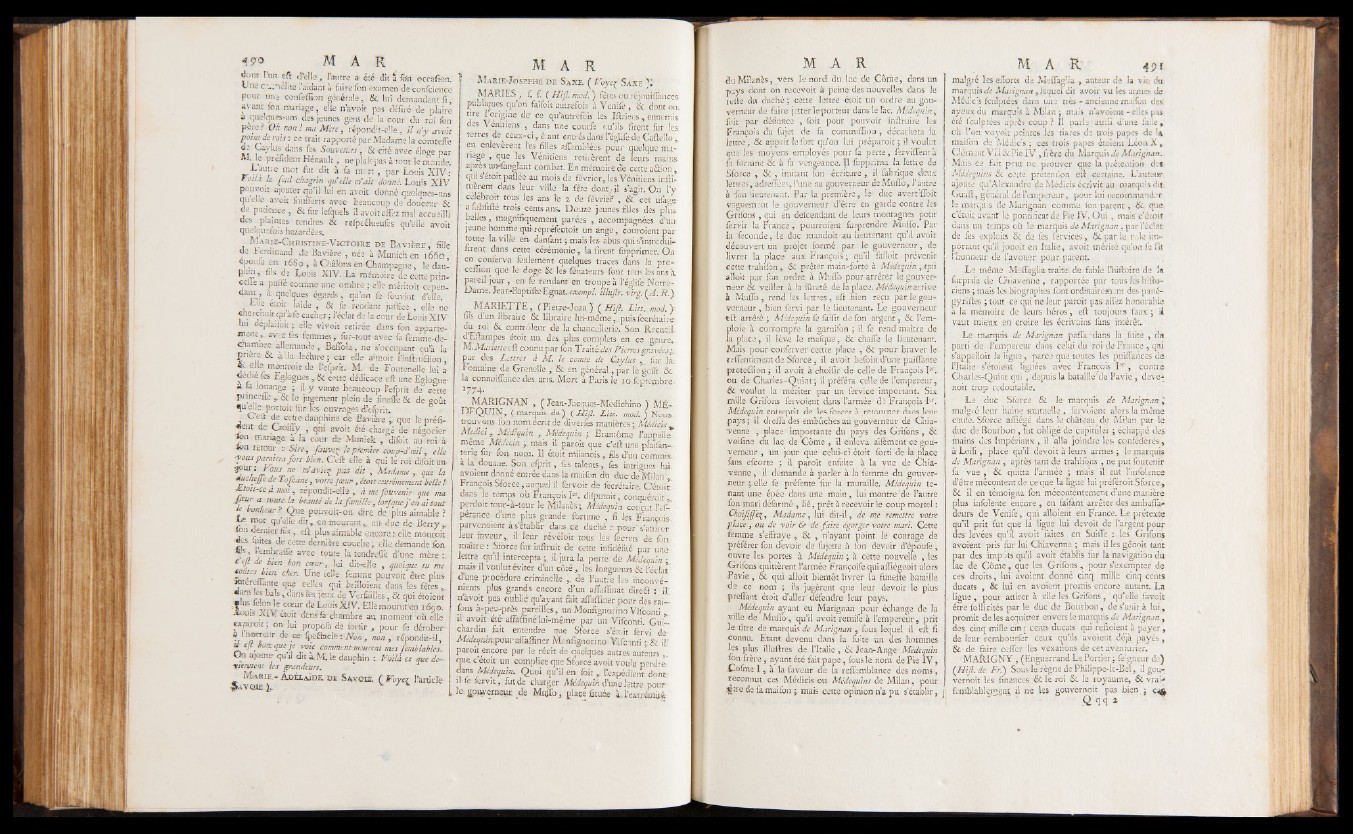 490 M A R
dont l'un est d'elle, l'autre a été dit à son occasion.
Une carmélite l'aidant à faire son examen de conscience
pour une confession générale, & lui demandant si,
avant son mariage, elle n'avoit pas désiré de plaire
à quelques-uns des jeunes gens de la cour du roi son
père? Oh non! ma Mère, répondit-elle, il n'y avoit
point de rois: ce trait rapporté par Madame la comtesse
de Caylus dans ses Souvenirs, & cité avec éloge par
M. le président Hénault, ne plaît pas à tout le monde.
L'autre mot fut dit à sa mort, par Louis XIV:
Voilà le seul chagrin qu'elle m'ait donné. Louis XIV
pouvoit ajouter qu'il lui en avoit donné quelques-uns
qu'elle avoit soufferts avec beaucoup de douceur &
de patience, & sur lesquels il avoit assez mal accueilli
des plaintes tendres & respectueuses qu'elle avoit
quelquefois hazardées.
MARIE-CHRISTINE-VICTOIRE DE BAVIÈRE, fille
de Ferdinand de Bavière, née à Munich en 1660,
épousa en 1680, à Châlons en Champagne, le dau-
phin, fils de Louis XIV. La mémoire de cette prin-
cesse a passé comme une ombre; elle méritoit cepen-
dant, à quelques égards, qu'on se souvînt d'elle.
Elle étoit laide, & se rendant justice, elle ne
cherchoit qu'à se cacher; l'éclat de la cour de Louis XIV
lui déplaisoit; elle vivoit retirée dans son apparte-
ment, avec ses femmes, sur-tout avec sa femme-de-
chambre allemande, Bessola, ne s'occupant qu'à la
prière & à la lecture; car elle aimoit l'instruction,
& elle montroit de l'esprit. M. de Fontenelle lui a
dédié ses Eglogues, & cette dédicace est une Eglogue
à sa louange; il y vante beaucoup l'esprit de cette
princesse, & le jugement plein de finesse & de goût
qu'elle portoit sur les ouvrages d'esprit.
C'est de cette dauphine de Bavière, que le prési-
dent de Croissy, qui avoit été chargé de négocier
son mariage à la cour de Munich, disoit au roi à
son retour: Sire, sauvez le premier coup-d'œil, elle
vous paroîtra fort bien. C'est elle à qui le roi disoit un
jour: Vous ne m'aviez pas dit, Madame, que la
duchesse de Toscane, votre sœur, étoit extrêmement belle?
Etoit-ce à moi, répondit-elle, à me souvenir que ma
sœur a toute la beauté de la famille, lorsque j'en ai tout
le bonheur? Que pouvoit-on dire de plus aimable?
Le mot qu'elle dit, en mourant, au duc de Berry,
son dernier fils, est plus aimable encore: elle mouroit
des suites de cette dernière couche; elle demande son
fils, l'embrasse avec toute la tendresse d'une mère:
c'est de bien bon cœur, lui dit-elle, quoique tu me
coûtes bien cher. Une telle femme pouvoit être plus
intéressante que celles qui brilloient dans les fêtes,
dans les bals, dans les jeux de Versailles, & qui étoient
plus selon le cœur de Louis XIV. Elle mourut en 1690.
Louis XIV étoit dans sa chambre au moment où elle
expiroit; on lui proposa de sortir, pour se dérober
à l'horreur de ce spectacle: Non, non, répondit-il,
il est bon que je voie comment meurent mes semblables.
On ajoute qu'il dit à M. le dauphin: Voilà ce que de-
viennent les grandeurs.
MARIE-ADÉLAÏDE DE SAVOIE. (Voyez l'article
SAVOIE).
M A R
MARIE-JOSEPHE DE SAXE. (Voyez SAXE).
MARIES, s. f. (Hist. mod.) fêtes ou réjouissances
publiques qu'on faisoit autrefois à Venise, & dont on
tire l'origine de ce qu'autrefois les Istriens, ennemis
des Vénitiens, dans une course qu'ils firent sur les
terres de ceux-ci, étant entrés dans l'église de Castello,
en enlevèrent les filles assemblées pour quelque ma-
riage, que les Vénitiens retirèrent de leurs mains
après un sanglant combat. En mémoire de cette action,
qui s'étoit passée au mois de février, les Vénitiens insti-
tuèrent dans leur ville la fête dont il s'agit. On l'y
célébroit tous les ans le 2 de février, & cet usage
a subsisté trois cents ans. Douze jeunes filles des plus
belles, magnifiquement parées, accompagnées d'un
jeune homme qui représentoit un ange, couroient par
toute la ville en dansant; mais les abus qui s'introdui-
sirent dans cette cérémonie, la firent supprimer. On
en conserva seulement quelques traces dans la pro-
cession que le doge & les sénateurs font tous les ans à
pareil jour, en se rendant en troupe à l'église Notre-
Dame. Jean-Baptiste Egnat. exempl. illustr. virg. (A. R.)
MARIETTE, (Pierre-Jean) (Hist. Litt. mod.)
fils d'un libraire & libraire lui-même, puis secrétaire
du roi & contrôleur de la chancellerie. Son Recueil
d'Estampes étoit un des plus complets en ce genre.
M. Mariette est connu par son Traité des Pierres gravées;
par des Lettres à M. le comte de Caylus, sur la
Fontaine de Grenelle, & en général, par le goût &
la connoissance des arts. Mort à Paris le 10 septembre
1774.
MARIGNAN, (Jean-Jacques-Medichino) MÉ-
DEQUIN, (marquis de) (Hist. Litt. mod.) Nous
trouvons son nom écrit de diverses manières; Médicis,
Medici, Médiquin, Médequin; Brantôme l'appelle
même Médecin; mais il paroît que c'est une plaisan-
terie sur son nom. Il étoit milanois, fils d'un commis
à la douane. Son esprit, ses talents, ses intrigues lui
avoient donné entrée dans la maison du duc de Milan,
François Sforce, auquel il servoit de secrétaire. C'étoit
dans le temps où François Ier. disputoit, conquéroit,
perdoit tour-à-tour le Milanès; Médequin conçut l'es-
pérance d'une plus grande fortune, si les François
parvenoient à s'établir dans ce duché: pour s'attirer
leur faveur, il leur révéloit tous les secrets de son
maître: Sforce fut instruit de cette infidélité par une
lettre qu'il intercepta; il jura la perte de Médequin;
mais il voulut éviter d'un côté, les longueurs & l'éclat
d'une procédure criminelle, de l'autre les inconvé-
niens plus grands encore d'un assassinat direct: il
n'avoit pas oublié qu'ayant fait assassiner pour des rai-
sons à-peu-près pareilles, un Monsignorino Visconti,
il avoit été assassiné lui-même par un Visconti. Gui-
chardin fait entendre que Sforce s'étoit servi de
Médequin pour assassiner Monsignorino Visconti; & il
paroît encore par le récit de quelques autres auteurs,
que c'étoit un complice que Sforce avoit voulu perdre
dans Médequin. Quoi qu'il en soit, l'expédient dont
il se servit, fut de charger Médequin d'une lettre pour
le gouverneur de Musso, place située à l'extrémité
M A R
du Milanès, vers le nord du lac de Côme, dans un
pays dont on recevoit à peine des nouvelles dans le
reste du duché; cette lettre étoit un ordre au gou-
verneur de faire jetter le porteur dans le lac. Médequin,
soit par défiance, soit pour pouvoir instruire les
François du sujet de sa commission, décacheta la
lettre, & apprit le sort qu'on lui préparoit; il voulut
que les moyens employés pour sa perte, servissent à
sa fortune & à sa vengeance. Il supprima la lettre de
Sforce, &, imitant son écriture, il fabrique deux
lettres, adressées, l'une au gouverneur de Musso, l'autre
à son lieutenant. Par la première, le duc avertissoit
vaguement le gouverneur d'être en garde contre les
Grisons, qui en descendant de leurs montagnes pour
servir la France, pourroient surprendre Musso. Par
la seconde, le duc mandoit au lieutenant qu'il avoit
découvert un projet formé par le gouverneur, de
livrer la place aux François; qu'il falloit prévenir
cette trahison, & prêter main-forte à Médequin, qui
alloit par son ordre à Musso pour arrêter le gouver-
neur & veiller à la sûreté de la place. Médequin arrive
à Musso, rend les lettres, est bien reçu par le gou-
verneur, bien servi par le lieutenant. Le gouverneur
est arrêté; Médequin se saisit de son argent, & l'em-
ploie à corrompre la garnison; il se rend maître de
la place, il lève le masque, & chasse le lieutenant.
Mais pour conserver cette place, & pour braver le
ressentiment de Sforce, il avoit besoin d'une puissante
protection; il avoit à choisir de celle de François Ier.
ou de Charles-Quint; il préféra celle de l'empereur,
& voulut la mériter par un service important. Six
mille Grisons servoient dans l'armée de François Ier.
Médequin entreprit de les forcer à retourner dans leur
pays; il dressa des embûches au gouverneur de Chia-
venne, place importante du pays des Grisons, &
voisine du lac de Côme, il enleva aisément ce gou-
verneur, un jour que celui-ci étoit sorti de la place
sans escorte; il paroît ensuite à la vue de Chia-
venne, il demande à parler à la femme du gouver-
neur; elle se présente sur la muraille. Médequin te-
nant une épée dans une main, lui montre de l'autre
son mari désarmé, lié, prêt à recevoir le coup mortel:
Choisissez, Madame, lui dit-il, de me remettre votre
place, ou de voir & de faire égorger votre mari. Cette
femme s'effraye, &, n'ayant point le courage de
préférer son devoir de sujette à son devoir d'épouse,
ouvre les portes à Médequin; à cette nouvelle, les
Grisons quittèrent l'armée Françoise qui assiégeoit alors
Pavie, & qui alloit bientôt livrer la funeste bataille
de ce nom; ils jugèrent que leur devoir le plus
pressant étoit d'aller défendre leur pays.
Médequin ayant eu Marignan pour échange de la
ville de Musso, qu'il avoit remise à l'empereur, prit
le titre de marquis de Marignan, sous lequel il est si
connu. Etant devenu dans la suite un des hommes
les plus illustres de l'Italie, & Jean-Ange Médequin
son frère, ayant été fait pape, sous le nom de Pie IV,
Cosme I, à la faveur de la ressemblance des noms,
reconnut ces Médicis ou Médequins de Milan, pour
être de sa maison; mais cette opinion n'a pu s'établir,
M A R 491
malgré les efforts de Messaglia, auteur de la vie du
marquis de Marignan, lequel dit avoir vu les armes de
Médicis sculptées dans une très-ancienne maison des
ayeux du marquis à Milan; mais n'avoient-elles pas
été sculptées après coup? Il parle aussi d'une salle,
où l'on voyoit peintes les tiares de trois papes de la
maison de Médicis; ces trois papes étoient Léon X,
Clément VII & Pie IV, frère du Marquis de Marignan.
Mais ce fait peut ne prouver que la prétention des
Médequins & cette prétention est certaine. L'auteur
ajoute qu'Alexandre de Médicis écrivit au marquis du
Guast, général de l'empereur, pour lui recommander
le marquis de Marignan comme son parent, & que
c'étoit avant le pontificat de Pie IV. Oui, mais c'étoit
dans un temps où le marquis de Marignan, par l'éclat
de ses exploits & de ses services, & par le rôle im-
portant qu'il jouoit en Italie, avoit mérité qu'on se fît
l'honneur de l'avouer pour parent.
Le même Messaglia traite de fable l'histoire de la
surprise de Chiavenne, rapportée par tous les histo-
riens; mais les biographes sont ordinairement des pané-
gyristes; tout ce qui ne leur paroît pas assez honorable
à la mémoire de leurs héros, est toujours faux; il
vaut mieux en croire les écrivains sans intérêt.
Le marquis de Marignan passa dans la suite, du
parti de l'empereur dans celui du roi de France, qui
s'appelloit la ligue, parce que toutes les puissances de
l'Italie s'étoient liguées avec François Ier, contre
Charles-Quint qui, depuis la bataille de Pavie, deve-
noit trop redoutable.
Le duc Sforce & le marquis de Marignan,
malgré leur haine mutuelle, servoient alors la même
cause. Sforce assiégé dans le château de Milan par le
duc de Bourbon, fut obligé de capituler; échappé des
mains des Impériaux, il alla joindre les confédérés,
à Lodi, place qu'il devoit à leurs armes; le marquis
de Marignan, après tant de trahisons, ne put soutenir
sa vue, & quitta l'armée; mais il eut l'insolence
d'être mécontent de ce que la ligue lui préféroit Sforce,
& il en témoigna son mécontentement d'une manière
plus insolente encore, en faisant arrêter des ambassa-
deurs de Venise, qui alloient en France. Le prétexte
qu'il prit fut que la ligue lui devoit de l'argent pour
des levées qu'il avoit faites en Suisse: les Grisons
avoient pris sur lui Chiavenne; mais il les gênoit tant
par des impôts qu'il avoit établis sur la navigation du
lac de Côme, que les Grisons, pour s'exempter de
ces droits, lui avoient donné cinq mille cinq cents
ducats, & lui en avoient promis encore autant. La
ligue, pour attirer à elle les Grisons, qu'elle savoit
être sollicités par le duc de Bourbon, de s'unir à lui,
promit de les acquitter envers le marquis de Marignan,
des cinq mille cinq cents ducats qui restoient à payer,
de leur rembourser ceux qu'ils avoient déjà payés,
& de faire cesser les vexations de cet aventurier.
MARIGNY, (Enguerrand Le Portier; seigneur de)
(Hist. de Fr.) Sous le règne de Philippe-le-Bel, il gou-
vernoit les finances & le roi & le royaume, & vrai-
semblablement il ne les gouvernoit pas bien; car
Qqq 2